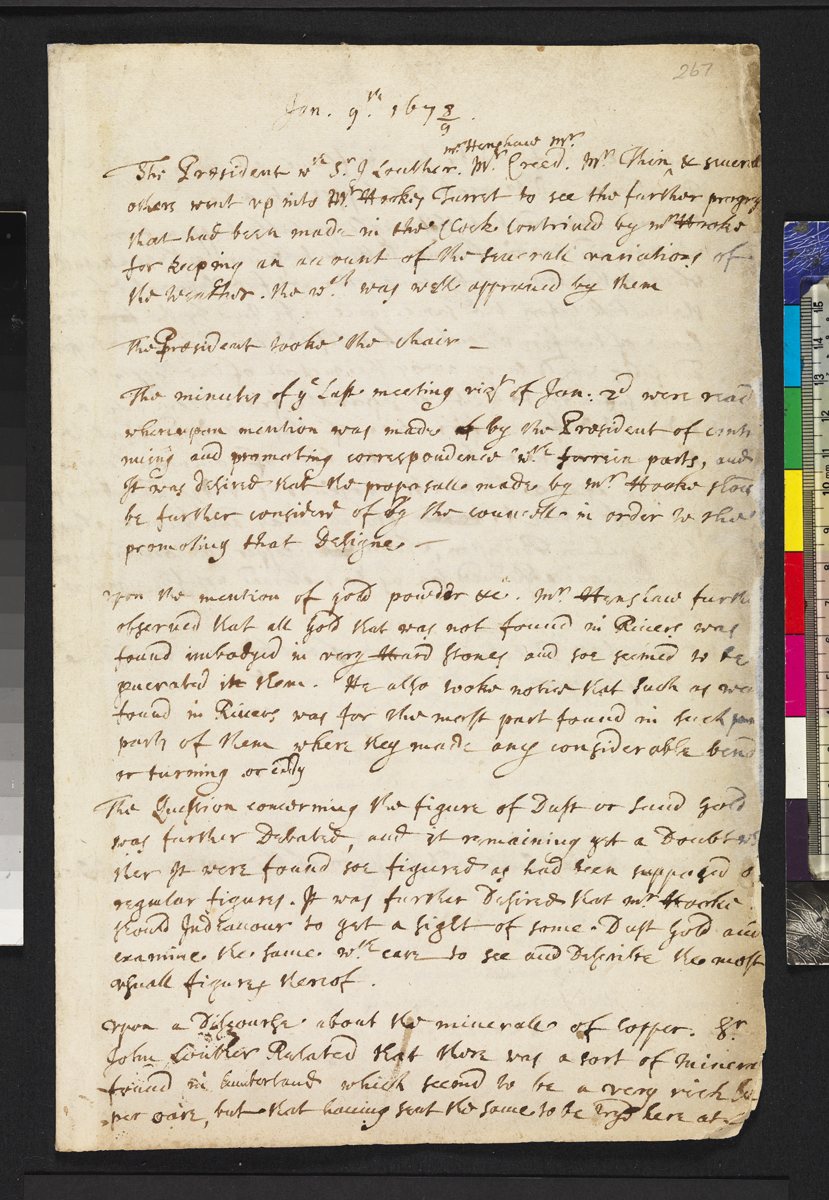 267
Jan. 9th. 167 8/9.
mr Henshaw mr
The Præsident wth Sr J Louther. Mr Creed. Mr Thin & severall
others went up into Mr Hookes Turret to see the further progresse
that had been made in the Clock Contrived by mr Hooke
for keeping an account of the severall variations of
the weather. the wch was well approued by them
The Præsident tooke the chair –
The minutes of ye Last meeting vizt of Jan. 2d were read
whereupon mention was made by the Præsident of
and promoting correspondence wth forrein parts, and
It was desired that the proposall made by mr Hooke
be further considerd of by the councell in order to the
promoting that Designe. –
upon the mention of gold powder &c. mr Henshaw
observed that all gold that was not found in Rivers was
found imbodyed in very Hard stones and soe seemed to be
in them. He also tooke notice that such as
found in Rivers was for the most part found in such
parts of them where they made any considerable
or turning or eddy
The Question concerning the figure of Dust or sand gold
was further Debated, and it remaining yet a Doubt
ther It were found soe figured as had been supposed
regular figures. It was further Desired that mr Hooke
should Indeavour to get a sight of some Dust gold and
examine the same wth care to see and Discribe the most
usuall figures thereof.
upon a Discourse about the mineralls of Copper. Sr
John Louther Related that there was a sort of
found in Cumberland which seemd to be a very rich
per oare, but that having sent the same to be tryd here at